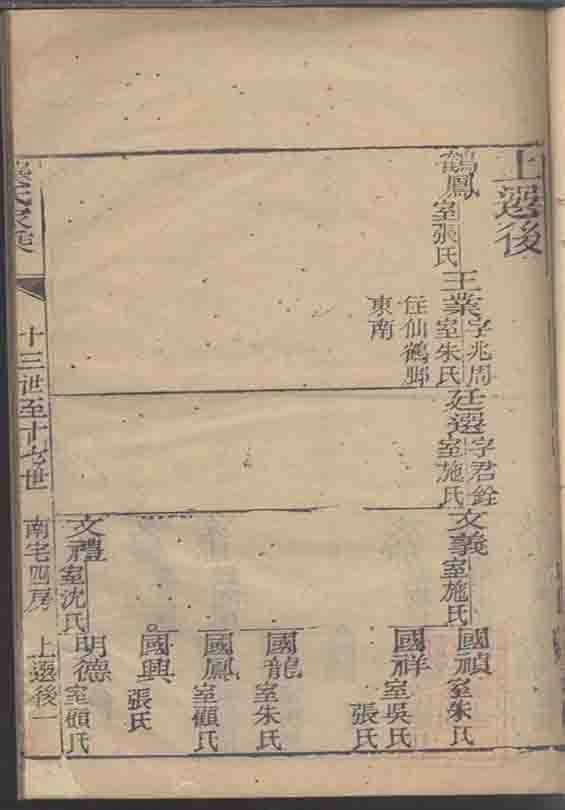 上選後
鶴鳳 室張氏
王業 字兆周 室朱氏
住仙鶴
東南
廷選 字君銓 室施氏
文義 室施氏
國禎 室朱氏
國祥 室吳氏
張氏
國龍 室朱氏
國鳳 室顧氏
國興 張氏
文禮 室沈氏
明德 室顧氏
氏家乘
十三世至十七世
南宅四房
上選後一